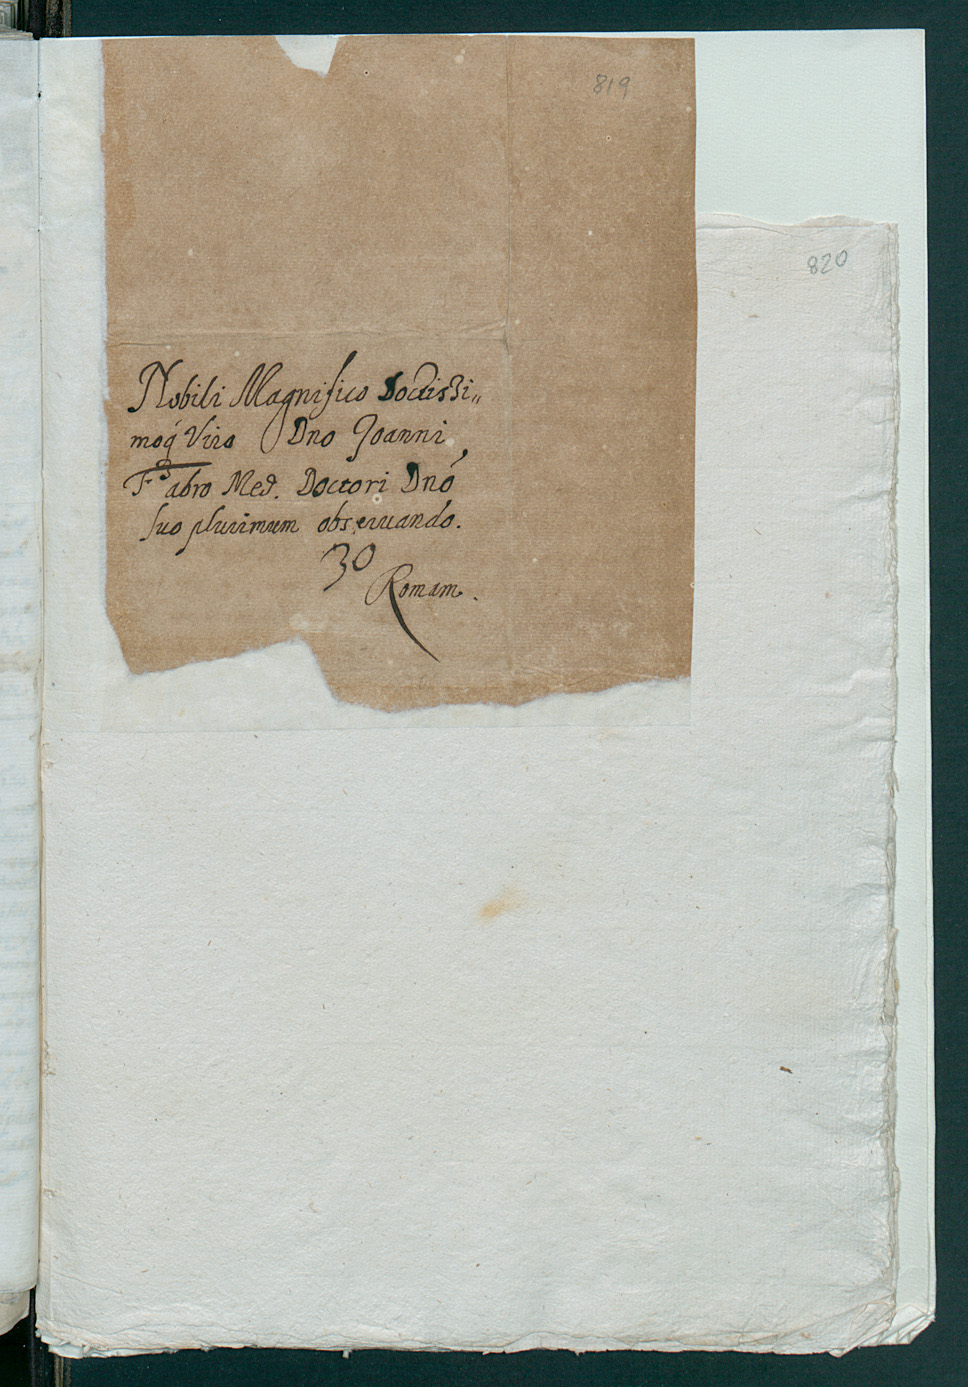 819
820
Nobili Magnifico Doctissi„
moq́ Viro Dno Joanni
Fabro Med. Doctori Dnó
suo plurimum obseruando.
30
Romam.